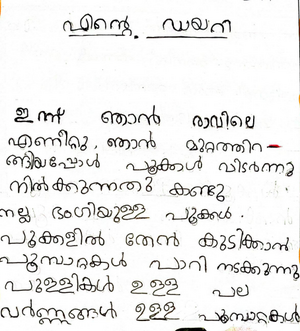 എന്റെ ഡയറി
ഇന്ന് ഞാൻ രാവിലെ
എണീറ്റു. ഞാൻ മുറ്റത്തിറ-
ങ്ങിയപ്പോൾ പൂക്കൾ വിടർന്നു
നിൽക്കുന്നതു കണ്ടു
നല്ല ഭംഗിയുള്ള പൂക്കൾ.
പൂക്കളിൽ തേൻ കുടിക്കാൻ
പൂമ്പാറ്റകൾ പാറി നടക്കുന്നു
പുള്ളികൾ ഉള്ള പല
വർണ്ണങ്ങൾ ഉള്ള പൂമ്പാറ്റകൾ